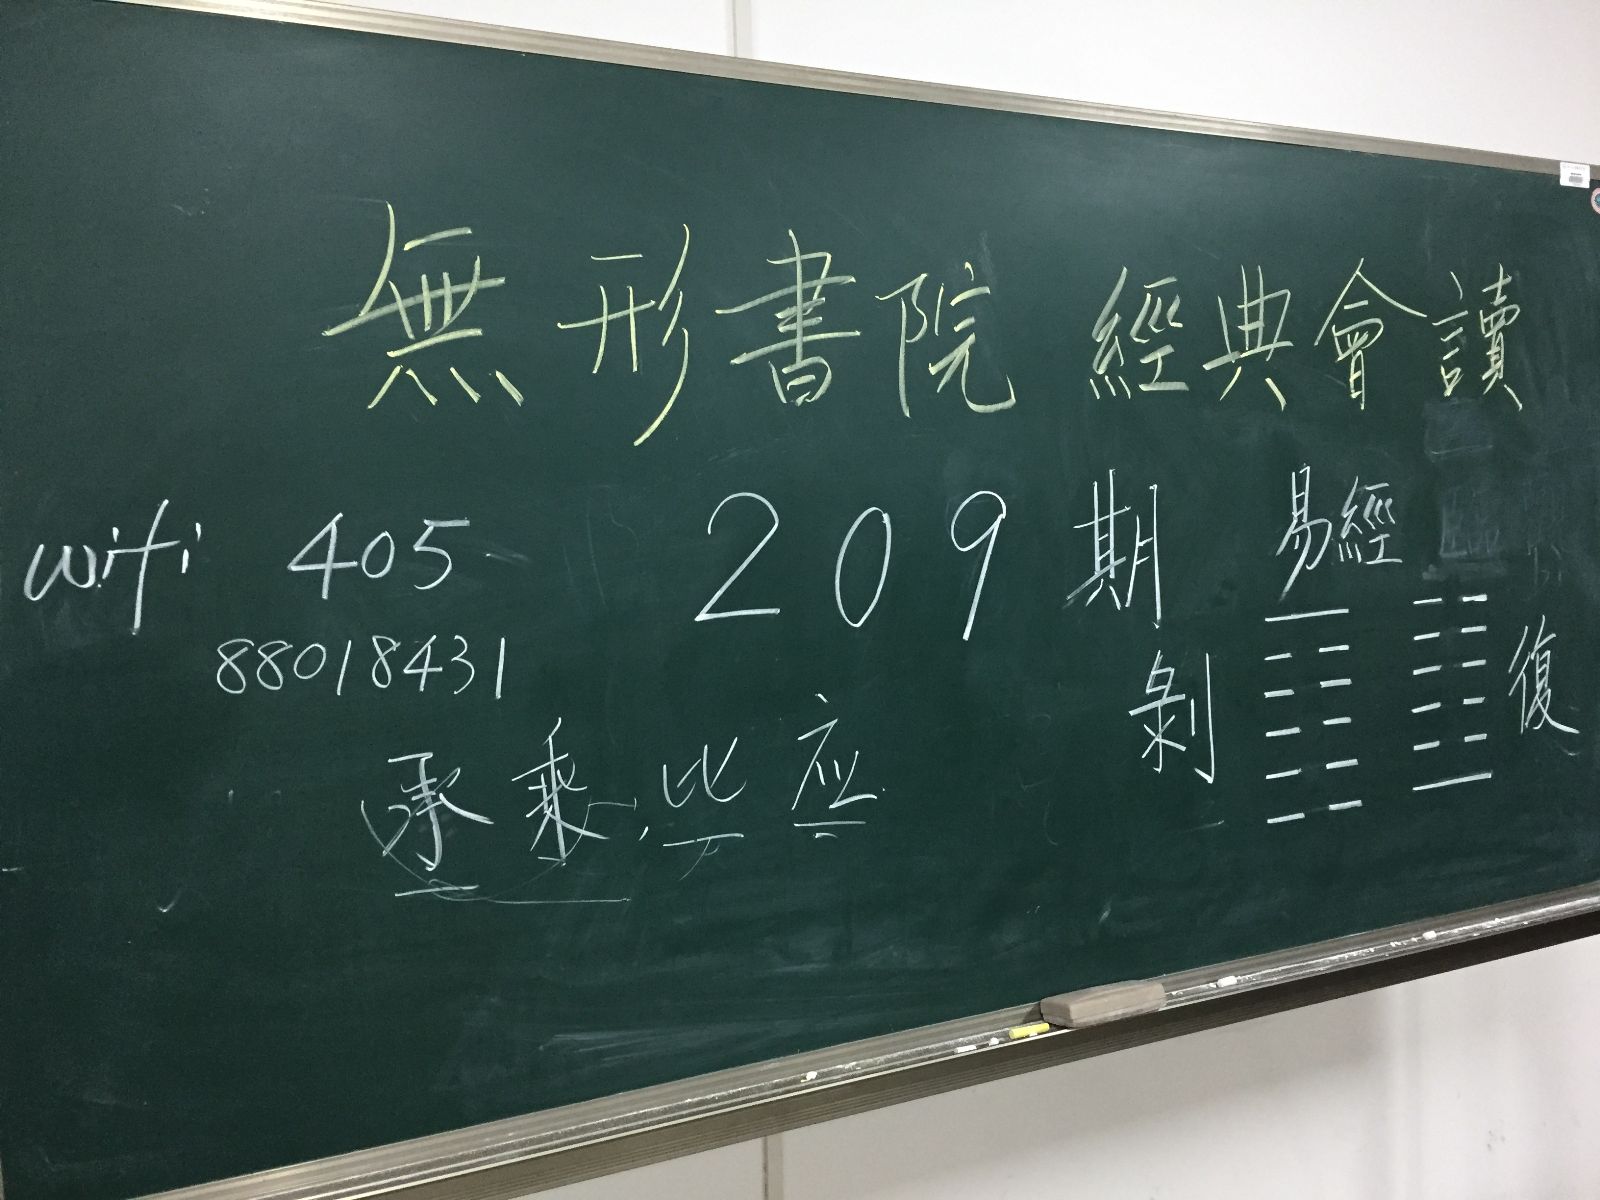 無形書院 經典會讀
wifi 405 209期 易經
88018431
剝 復
承乘,比应